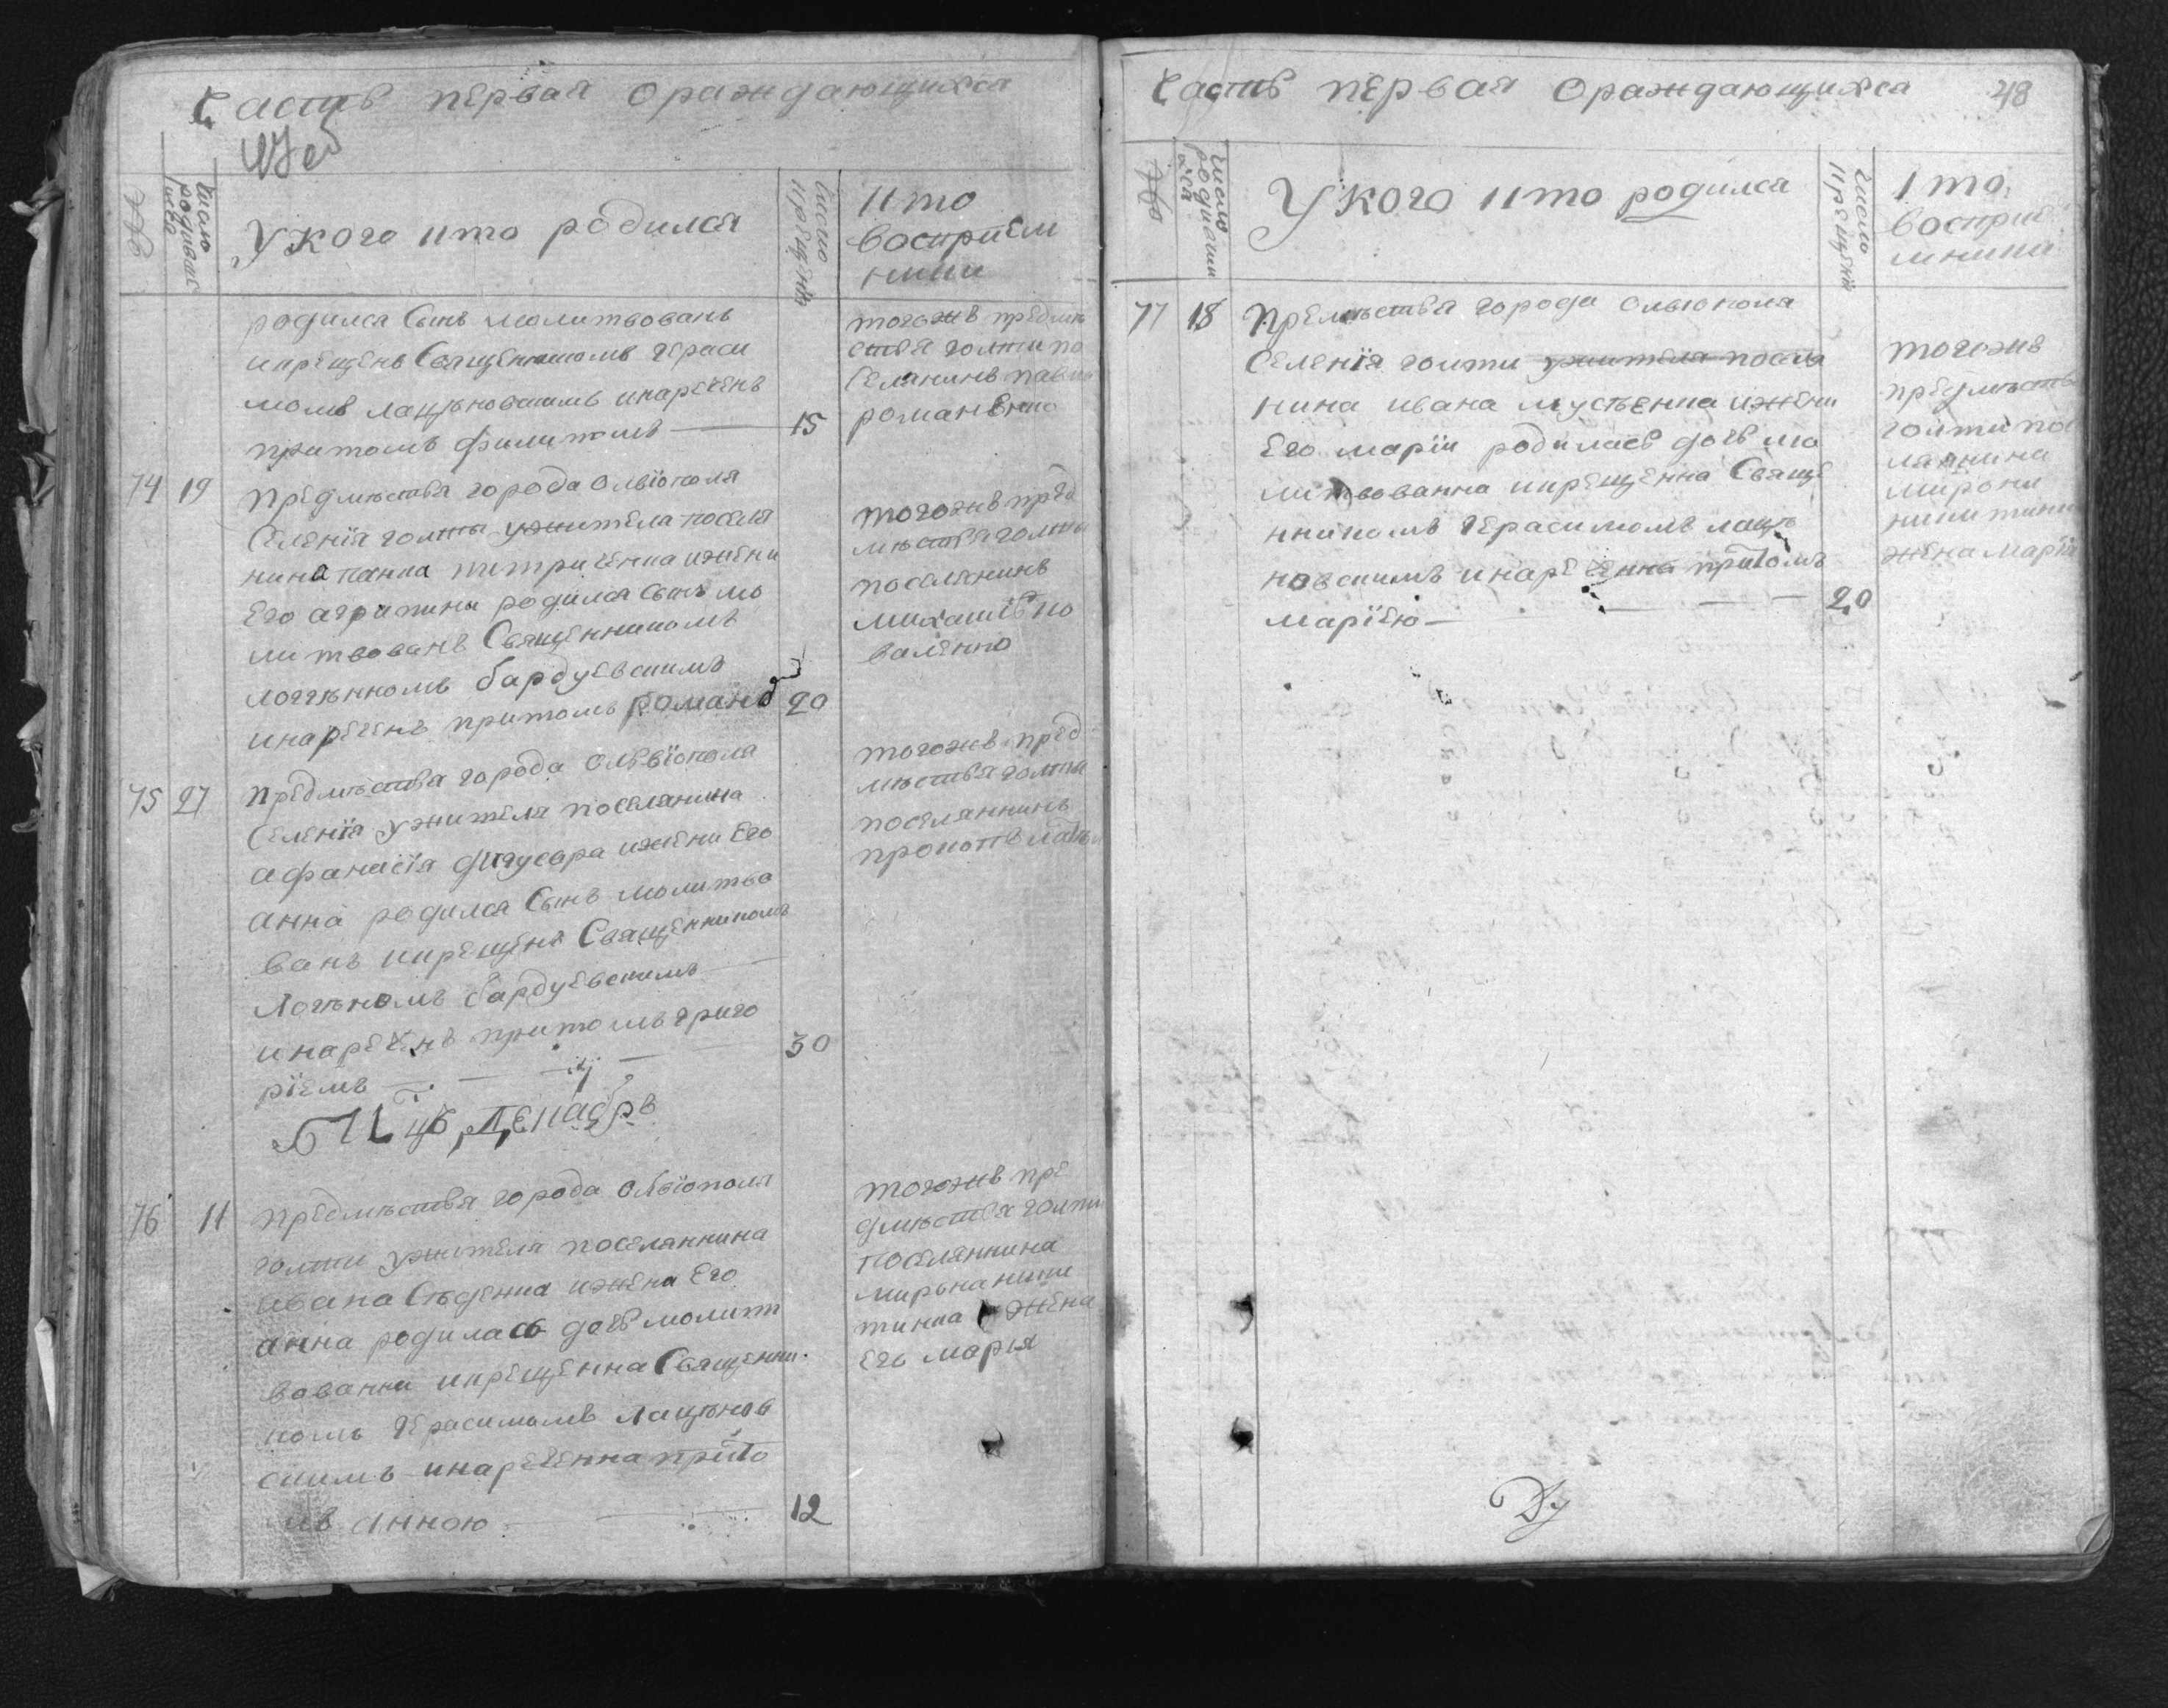 Часть первая ораждающихся
№
число родившихся
У кого кто родился
число крещенія
кто
воспріем
ники
родился Сынъ молитвованъ
икрещенъ Священникомъ Гераси
момъ лацѣновскимъ инареченъ
притомъ филипомъ
15
тогожъ предмѣ
стья голти по
селянинъ павел
романенко
74 19
предмѣстья города олвіополя
Селенія голты ужителя поселя
нина панка питриченка ижени
Его агрипини родился Сынъ мо
литвованъ Священникомъ
логгѣнномъ бардуевскимъ
инареченъ притомъ романъ
20
тогожъ пред
мѣстья голты
поселянинъ
михаилъ ко
валенко
75 27
предмѣстья города олвіополя
Селенія ужителя поселянина
афанасія ижени Его
анна родился Сынъ молитво
ванъ икрещенъ Священникомъ
Логѣномъ бардуевскимъ
инареченъ притомъ григо
ріемъ
30
тогожъ пред
мѣстья голты
поселяннинъ
прокопъ
Декабрь
76 11
предмѣстья города олвіополя
голти ужителя поселяннина
ивана Сѣденка ижена Его
анна родилась дочь молит
вованна икрещенна Священни
комъ Герасимомъ лацѣнов
скимъ инареченна прито
мъ анною
12
тогожъ пре
дмѣстья голти
поселяннина
мирона ники
тинка жена
Его марья
Часть первая ораждающихся 48
число родивши хся
У кого кто родился
число крещенія
кто
воспріе
мники
77 18
предмѣстья города олвюпола
Селенія голти ужителя посля
нина ивана мустенка ижени
Его маріи родилась дочь мо
литвованна икрещенна Свяще
нникомъ Герасимомъ лацѣ
новскимъ инареченна притомъ
маріею
20
тогожъ
предмѣсть
голти посе
ляннина
мирона
никитинк
жена марія